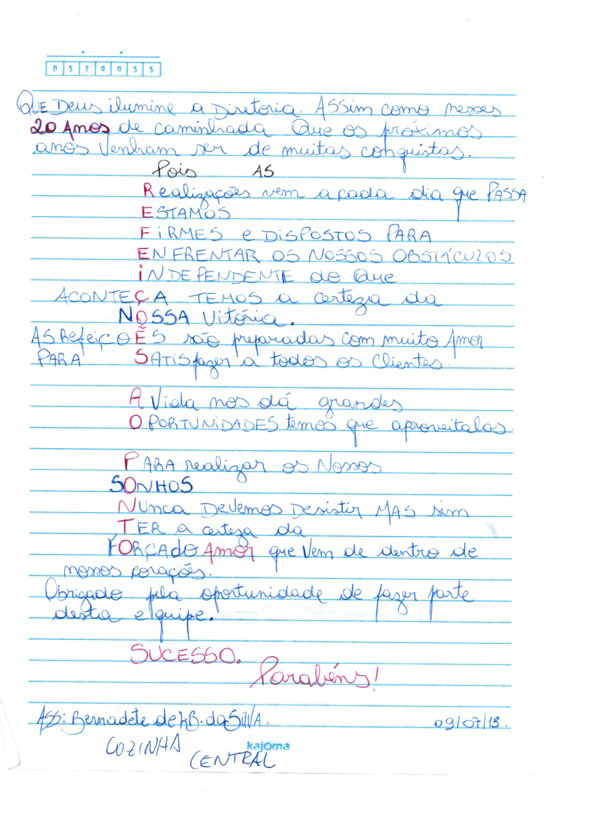 D S T Q Q S S
Que Deus ilumine a Diretoria. Assim como nesses
20 Anos de caminhada Que os próximos
anos Venham ser de muitas conquistas.
Pois AS
Realizações vem a cada dia que PASSA
ESTAMOS
FiRMES e DiSPOSTOS PARA
ENFRENTAR OS NOSSOS OBSTÁCULOS
iNDEPENDENTE do Que
ACONTEÇA TEMOS a certeza da
NOSSA Vitória.
AS Refeições são preparadas com muito Amor
PARA SATiSfazer a todos os Clientes.
A Vida nos dá grandes
OPORTUNiDADES temos que aproveitalas.
PARA realizar os Nossos
SONHOS
NUNCA DEVEMOS DESistir MAS sim
TER a certeza da
FORÇA do Amor que Vem de dentro de
nossos corações.
Obrigado pela oportunidade de fazer parte
desta equipe.
SUCESSO.
Parabéns!
Ass: Bernadete de da Silva. 09/07/13.
COZINHA
CENTRAL
kajoma